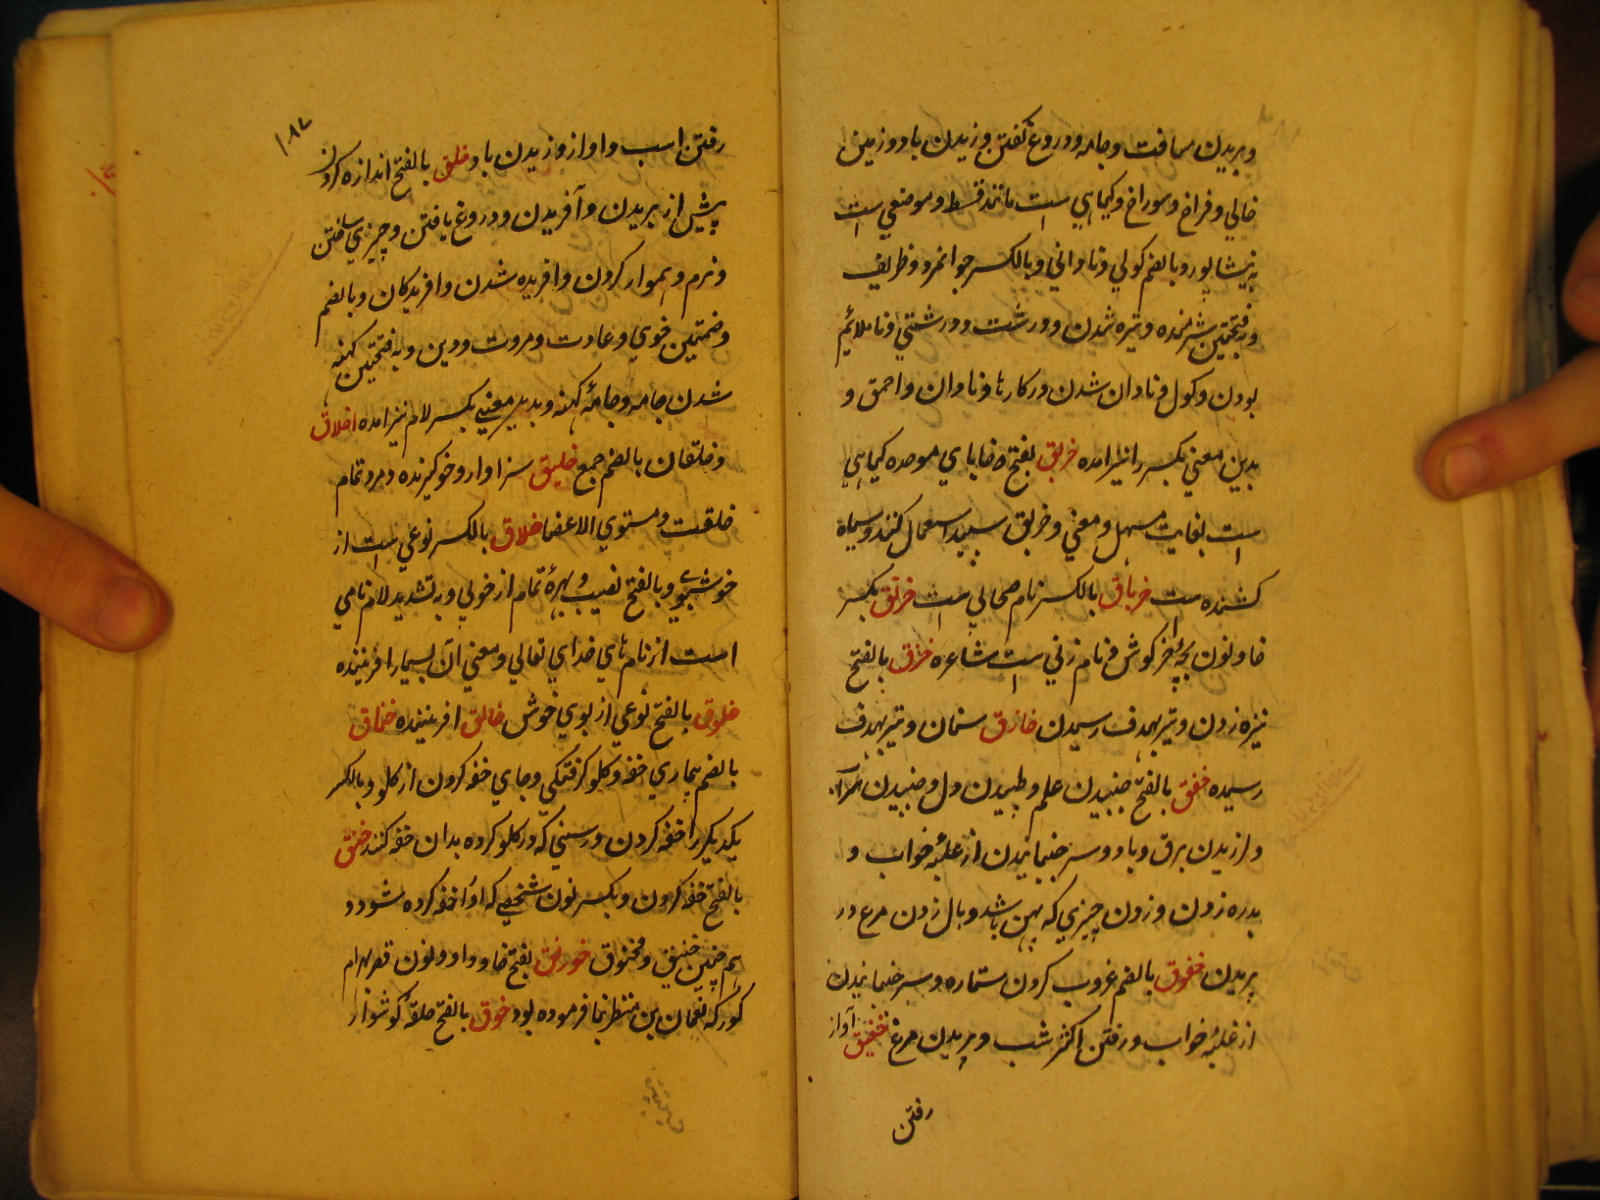 و بریدن مسافت و جامه و دروغ گفتن و زیدن باد و زمین
خالی و فراخ و سوراخ و کیاهی است مانند قسط و موضعی است
به نیشاپور و بالضم کولی و نادانی و بالکسر جوانمرد و ظریف
و به فتحتین شرمنده و تیره شدن و درشت و درشتی و ناملائم
بودن و کول و نادان شدن در کارها و نادان و احمق و
بدین معنی بکسر را نیز امده خربق بفتح خا و بای موحده کیاهی
است بغایت مسهل و مغثی و خربق سپید اسهال کند و سیاه
کشنده است خرباق بالکسر نام صحابی است خرنق بکسر
خا و نون بچه خرکوش و نام زنی است شاعره خزق بالفتح
نیزه زدن و تیر بهدف رسیدن خازق سنان و تیر بهدف
رسیده خفق بالفتح جنبیدن علم و طپیدن دل و جنبیدن سراب
و لرزیدن برق و باد و سر جنبانیدن از غلبه خواب و
بدره زدن و زدن چیزی که پهن باشد و بال زدن مرغ در
پریدن خفوق بالضم غروب کردن ستاره و سر جنبانیدن
از غلبه خواب و رفتن اکثر شب و پریدن مرغ خفیق آواز
رفتن
۱۸۷
رفتن اسب و اواز وزیدن باد خلق بالفتح اندازه کردن
پیش از بریدن و آفریدن و دروغ بافتن و چیزی ساختن
و نرم و هموار کردن و افریده شدن و افریدکان و بالضم
و ضمتین خوی و عادت و مروت و دین و به فتحتین کهنه
شدن جامه و جامه کهنه و بدین معنی بکسر لام نیز امده اخلاق
و خلقان بالضم جمع خلیق سزاوار و خو کیرنده و مرد تمام
خلقت و مستوی الاعضا خلاق بالکسر نوعی است از
خوشبوی و بالفتح نصیب و بهره تمام از خوبی و به تشدید لام نامی
است از نام های خدای تعالی و معنی ان بسیار افریننده
خلوق بالفتح نوعی از بوی خوش خالق افریننده خناق
بالضم بیماری خفه و کلو کرفتکی و جای خفه کردن از کلو و بالکسر
یکدیکر را خفه کردن و رسنی که در کلو کرده بدان خفه کنند خنق
بالفتح خفه کردن و بکسر نون شخصی که او را خفه کرده شود و
هم چنین خنیق و مخنوق خورنق بفتح خا و واو و نون قصر بهرام
کور که نعمان بن منذر بنا فرموده بود خوق بالفتح حلقه کوشوار